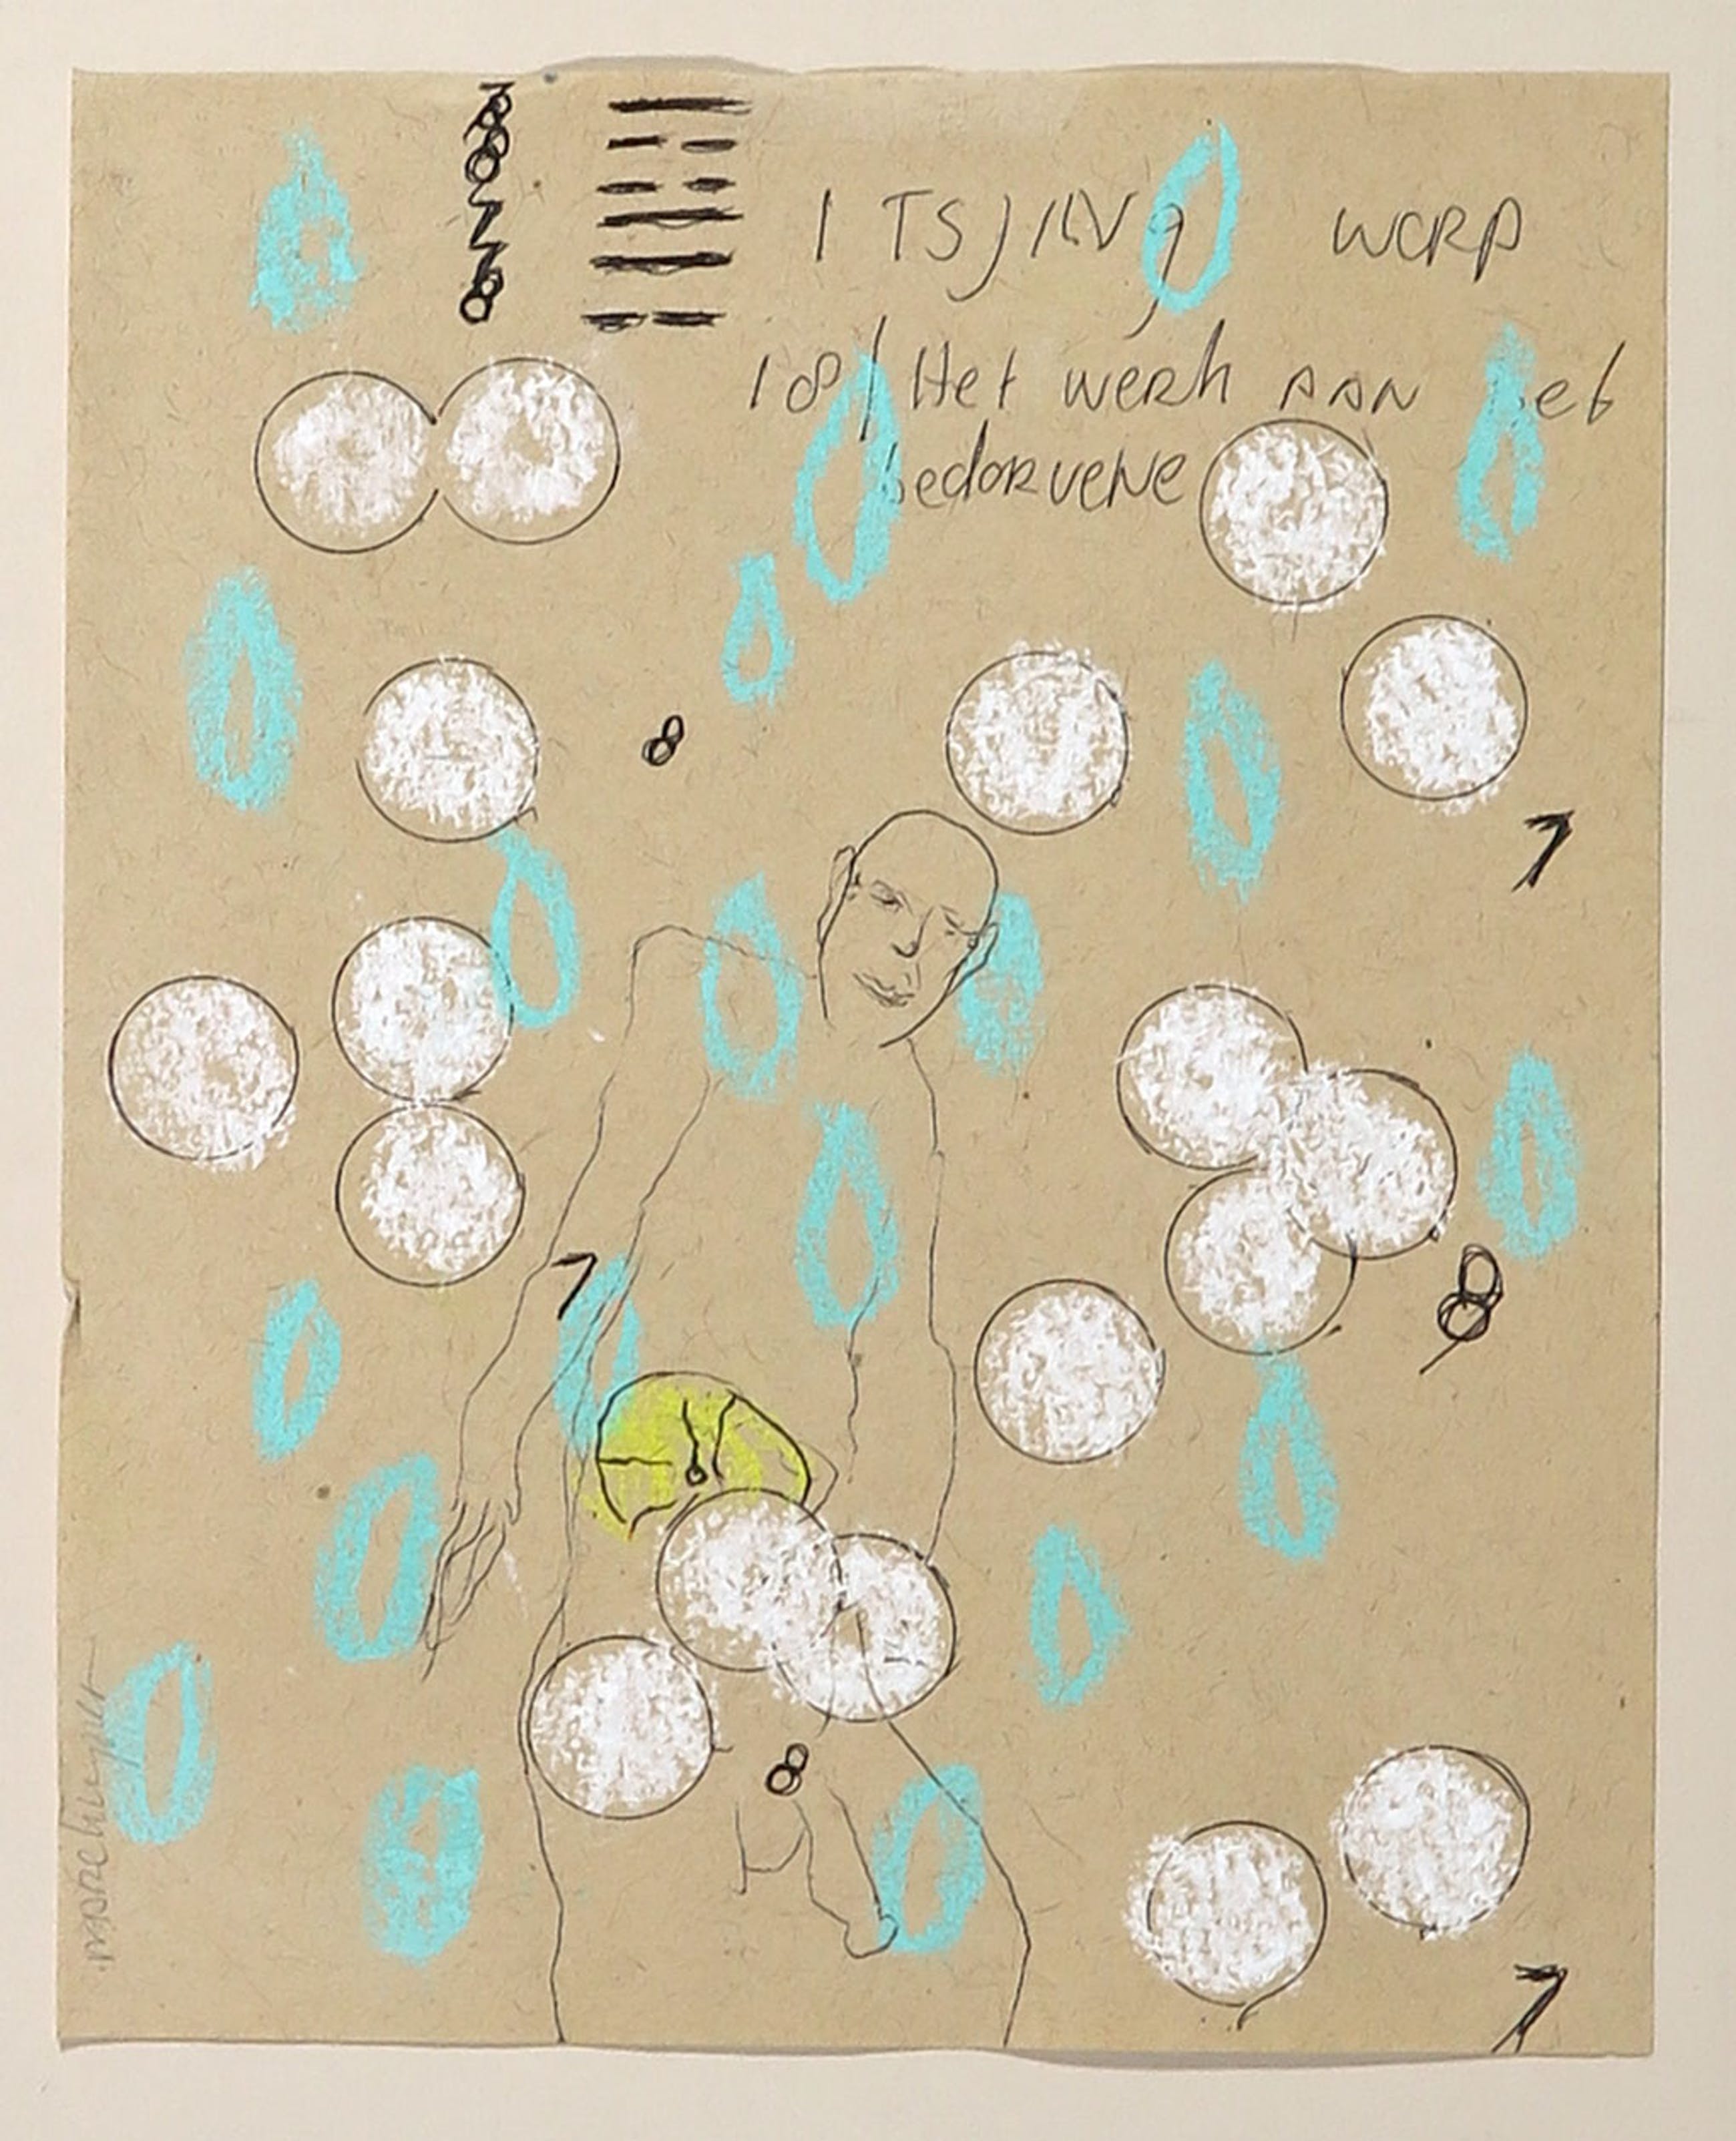 7
8
8
7
7
8
I TSJING WERP
18/ Het werk aan het
bedorvene
8
7
7
8
8
7